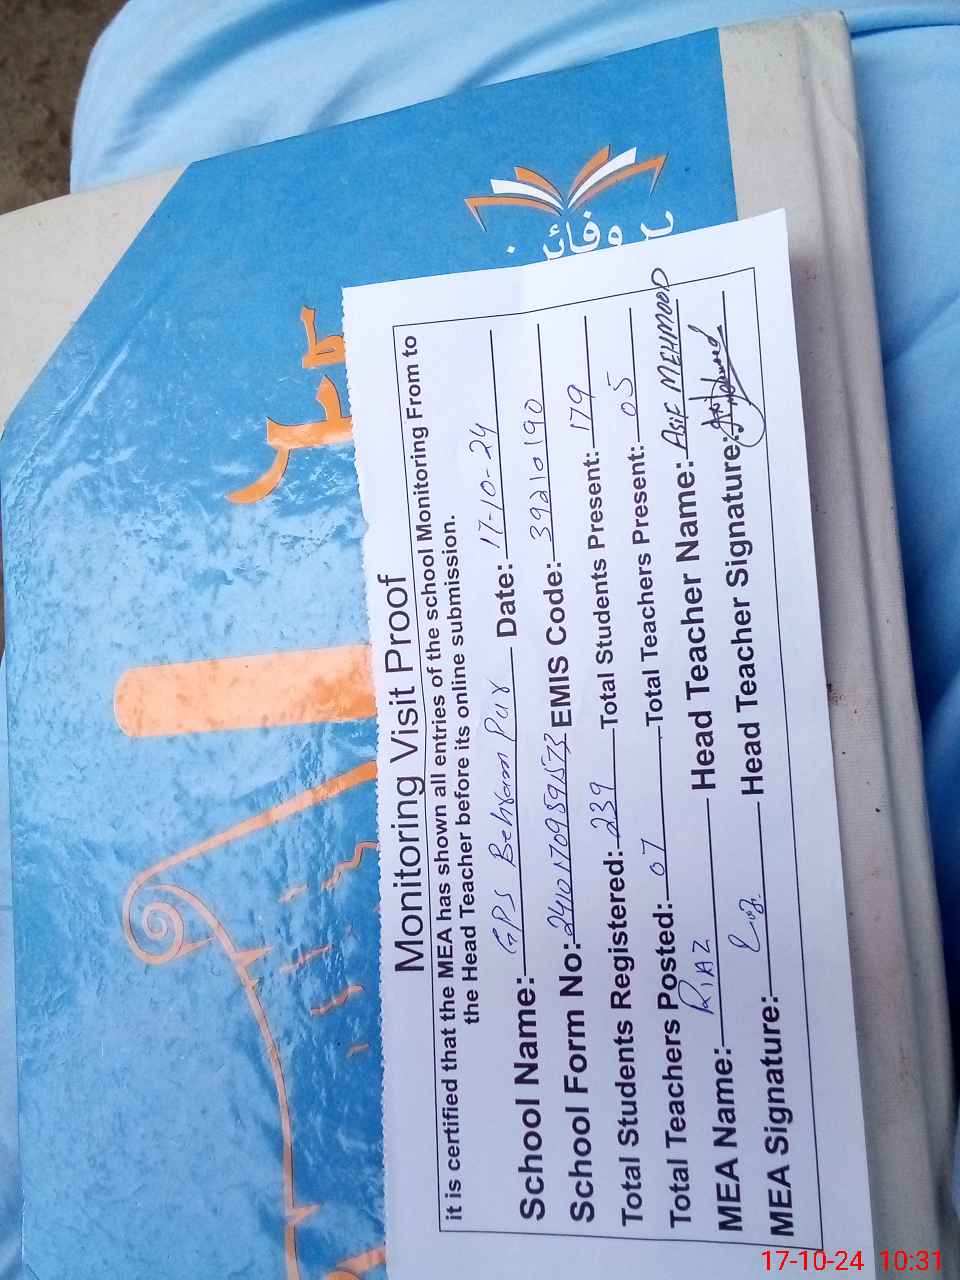 پروفائل
Monitoring Visit Proof
it is certified that the MEA has shown all entries of the school Monitoring From to
the Head Teacher before its online submission.
School Name: GPS Behram Pur Date: 17-10-24
School Form No: 24101709591573 EMIS Code: 39210190
Total Students Registered: 239 Total Students Present: 179
Total Teachers Posted: 07 Total Teachers Present: 05
MEA Name: RIAZ Head Teacher Name: ASIF MEHMOOD
MEA Signature: Head Teacher Signature:
17-10-24 10:31